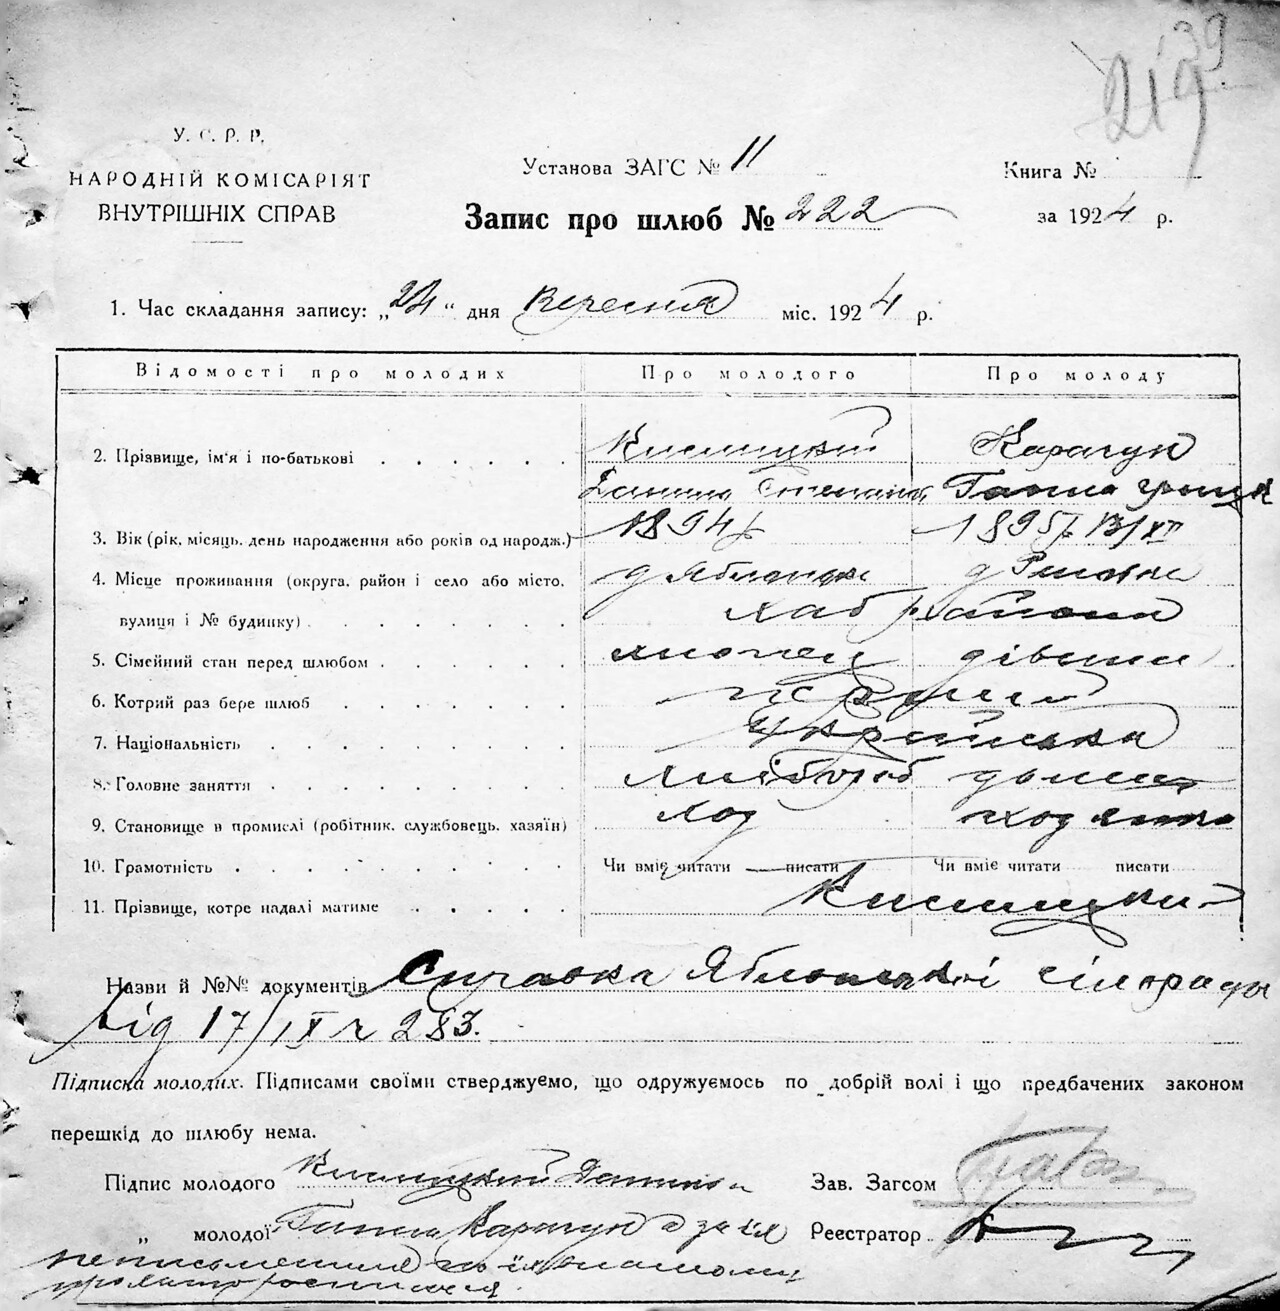 39
219
У. С. Р. Р.
НАРОДНІЙ КОМІСАРІЯТ
ВНУТРІШНІХ СПРАВ
Установа ЗАГС № 11
Запис про шлюб № 222
Книга №
за 1924 р.
1. Час складання запису: „24“ дня Вересня міс. 1924 р.
Відомості про молодих Про молодого Про молоду
2. Прізвище, ім'я і по-батькові Кислицкій Карачун
Данило Степанів Ганна
3. Вік (рік, місяць, день народження або років од народж.) 1894 1895
4. Місце проживання (округа, район і село або місто, д
вулиця і № будинку) Хаб района
5. Сімейний стан перед шлюбом хлопец дівиця
6. Котрий раз бере шлюб первий
7. Національність Українська
8. Головне заняття хлібороб
9. Становище в промислі (робітник, службовець, хазяїн)
10. Грамотність Чи вміє читати писати Чи вміє читати писати
11. Прізвище, котре надалі матиме Кислицкий
Назви й №№ документів Справка Яблонської сільради
від 17/IX № 283.
Підписка молодих. Підписами своїми стверджуємо, що одружуємось по добрій волі і що предбачених законом
перешкід до шлюбу нема.
Підпис молодого Кислицкий Данило Зав. Загсом
„ молодої Ганна Карачун а за її Реестратор
неписьменна по її
росписався.